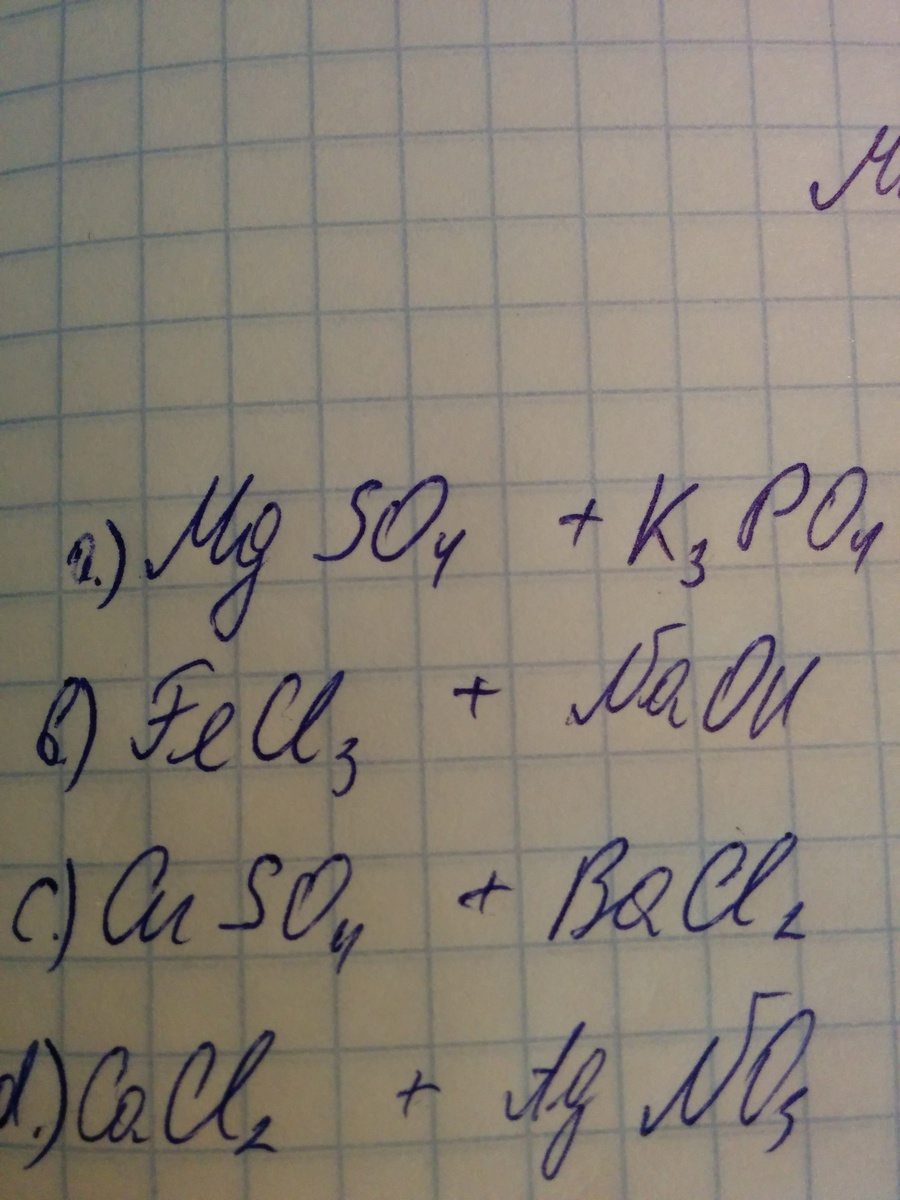 a.) MgSO₄ + K₃PO₄
b.) FeCl₃ + NaOH
c.) CuSO₄ + BaCl₂
d.) CaCl₂ + AgNO₃